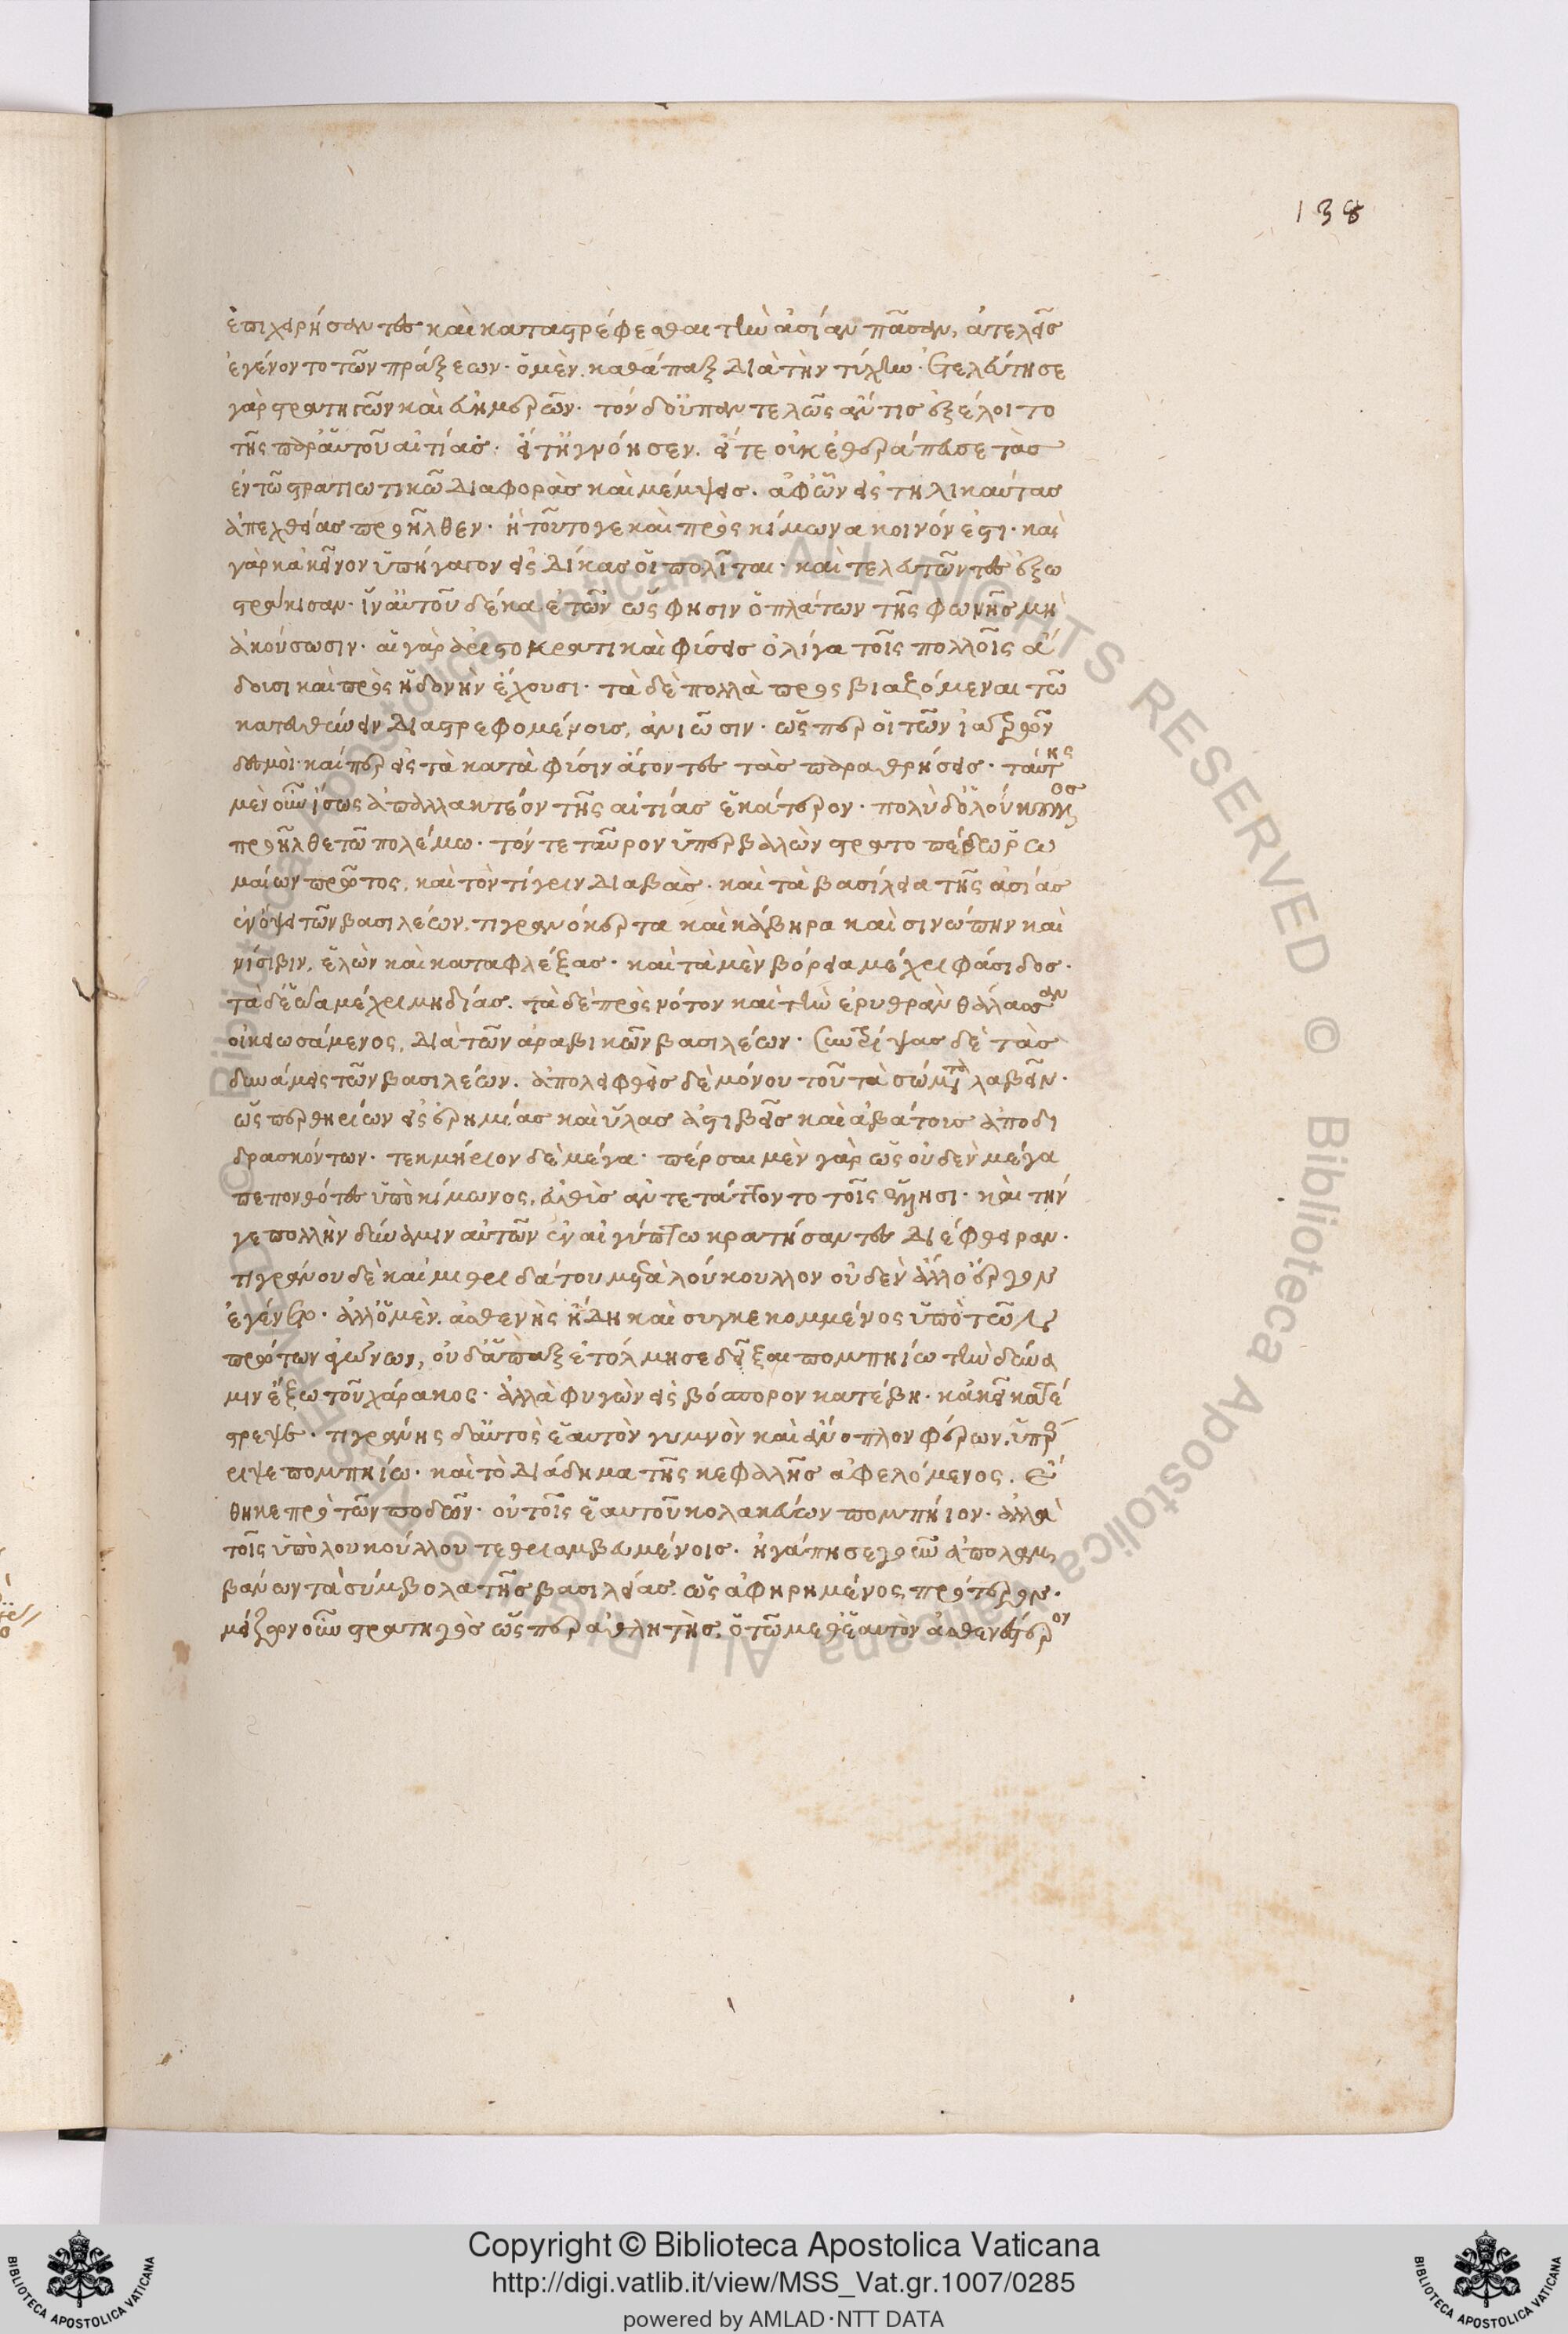 138
ἐπιχειρήσαντες καὶ καταστρέφεσθαι τὴν ἀσίαν πᾶσαν, ἀτελεῖς
ἐγένοντο τῶν πράξεων· ὁ μὲν καθάπαξ διὰ τὴν τύχην· ἐτελεύτησε
γὰρ στρατηγῶν καὶ εὐημερῶν· τὸν δ' οὐ παντελῶς ἄν τις ἐξέλοιτο
τῆς παρ' αὑτοῦ αἰτίας· εἴτ' ἠγνόησεν· εἴτε οὐκ ἐθεράπευσε τὰς
ἐν τῶ στρατιωτικῶ διαφορὰς καὶ μέμψεις· ἀφ' ὧν εἰς τηλικαύτας
ἀπεχθείας προῆλθεν· ἢ τοῦτό γε καὶ πρὸς κίμωνα κοινόν ἐστι· καὶ
γὰρ κἀκεῖνον ὑπήγαγον εἰς δίκας οἱ πολῖται· καὶ τελευτῶντες ἐξω
στράκισαν· ἵν' αὐτοῦ δέκα ἐτῶν ὥς φησιν ὁ πλάτων τῆς φωνῆς μὴ
ἀκούσωσιν· αἱ γὰρ ἀριστοκρατικαὶ φύσεις ὀλίγα τοῖς πολλοῖς ἅ
δουσι καὶ πρὸς ἡδονὴν ἔχουσι· τὰ δὲ πολλὰ προσβιαζόμεναι τῶ
κατευθύνειν διαστρεφομένους, ἀνιῶσιν· ὥσπερ οἱ τῶν ἰατρῶν
δεσμοὶ· καίπερ εἰς τὰ κατὰ φύσιν ἄγοντες τὰς παραθρήσεις· ταύτης
μὲν οὖν ἴσως ἀπαλλακτέον τῆς αἰτίας ἑκάτερον· πολὺ δ' ὁ λούκουλλος
προῆλθε τῶ πολέμω· τόν τε ταῦρον ὑπερβαλὼν στρατοπέδω ῥω
μαίων πρῶτος, καὶ τὸν τίγριν διαβὰς· καὶ τὰ βασίλεια τῆς ἀσίας
ἐν ὄψει τῶν βασιλέων, τιγρανόκερτα καὶ κάβηρα καὶ σινώπην καὶ
νίσιβιν, ἑλὼν καὶ καταφλέξας· καὶ τὰ μὲν βόρεια μέχρι φάσιδος·
τὰ δ' ἑῶα μέχρι μηδίας· τὰ δὲ πρὸς νότον καὶ τὴν ἐρυθρὰν θάλασσαν
οἰκειωσάμενος, διὰ τῶν ἀραβικῶν βασιλέων· συντρίψας δὲ τὰς
δυνάμεις τῶν βασιλέων· ἀπολειφθεὶς δὲ μόνου τοῦ τὰ σώματα λαβεῖν·
ὥσπερ θηρίων εἰς ἐρημίας καὶ ὕλας ἀστιβεῖς καὶ ἀβάτους ἀποδι
δρασκόντων· τεκμήριον δὲ μέγα· πέρσαι μὲν γὰρ ὡς οὐδὲν μέγα
πεπονθότες ὑπὸ κίμωνος, εὐθὺς ἀντετάττοντο τοῖς ἕλλησι· καὶ τήν
γε πολλὴν δύναμιν αὐτῶν ἐν αἰγύπτω κρατήσαντες διέφθειραν·
τιγράνου δὲ καὶ μιθριδάτου μετὰ λούκουλλον οὐδὲν ἄλλο ἔργον
ἐγένετο· ἀλλ' ὁ μὲν ἀσθενὴς ἤδη καὶ συγκεκομμένος ὑπὸ τῶν
πρώτων ἀγώνων, οὐδ' ἅπαξ ἐτόλμησε δεῖξαι πομπηίω τὴν δύνα
μιν ἔξω τοῦ χάρακος· ἀλλὰ φυγὼν εἰς βόσπορον κατέβη· κἀκεῖ κατέ
στρεψε· τιγράνης δ' αὐτὸς ἑαυτὸν γυμνὸν καὶ ἄνοπλον φέρων, ὑπέρ
ριψε πομπηίω· καὶ τὸ διάδημα τῆς κεφαλῆς ἀφελόμενος, ἔ
θηκε πρὸ τῶν ποδῶν· οὐ τοῖς ἑαυτοῦ κολακεύων πομπήιον· ἀλλὰ
τοῖς ὑπὸ λουκούλλου τεθριαμβευμένοις· ἠγάπησε γοῦν ἀπολαμ
βάνων τὰ σύμβολα τῆς βασιλείας· ὡς ἀφηρημένος πρότερον·
μείζων οὖν στρατηγὸς ὥσπερ ἀθλητὴς, ὁ τῶ μεθ' ἑαυτὸν ἀσθενέστερον
Copyright © Biblioteca Apostolica Vaticana
http://digi.vatlib.it/view/MSS_Vat.gr.1007/0285
powered by AMLAD·NTT DATA